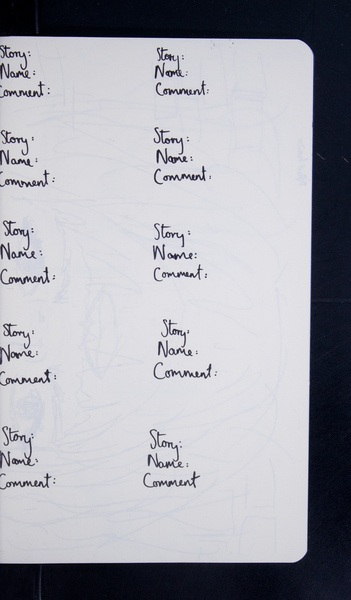 Story:
Name:
Comment:
Story:
Name:
Comment:
Story:
Name:
Comment:
Story:
Name:
Comment:
Story:
Name:
Comment:
Story:
Name:
Comment:
Story:
Name:
Comment:
Story:
Name:
Comment:
Story:
Name:
Comment:
Story:
Name:
Comment